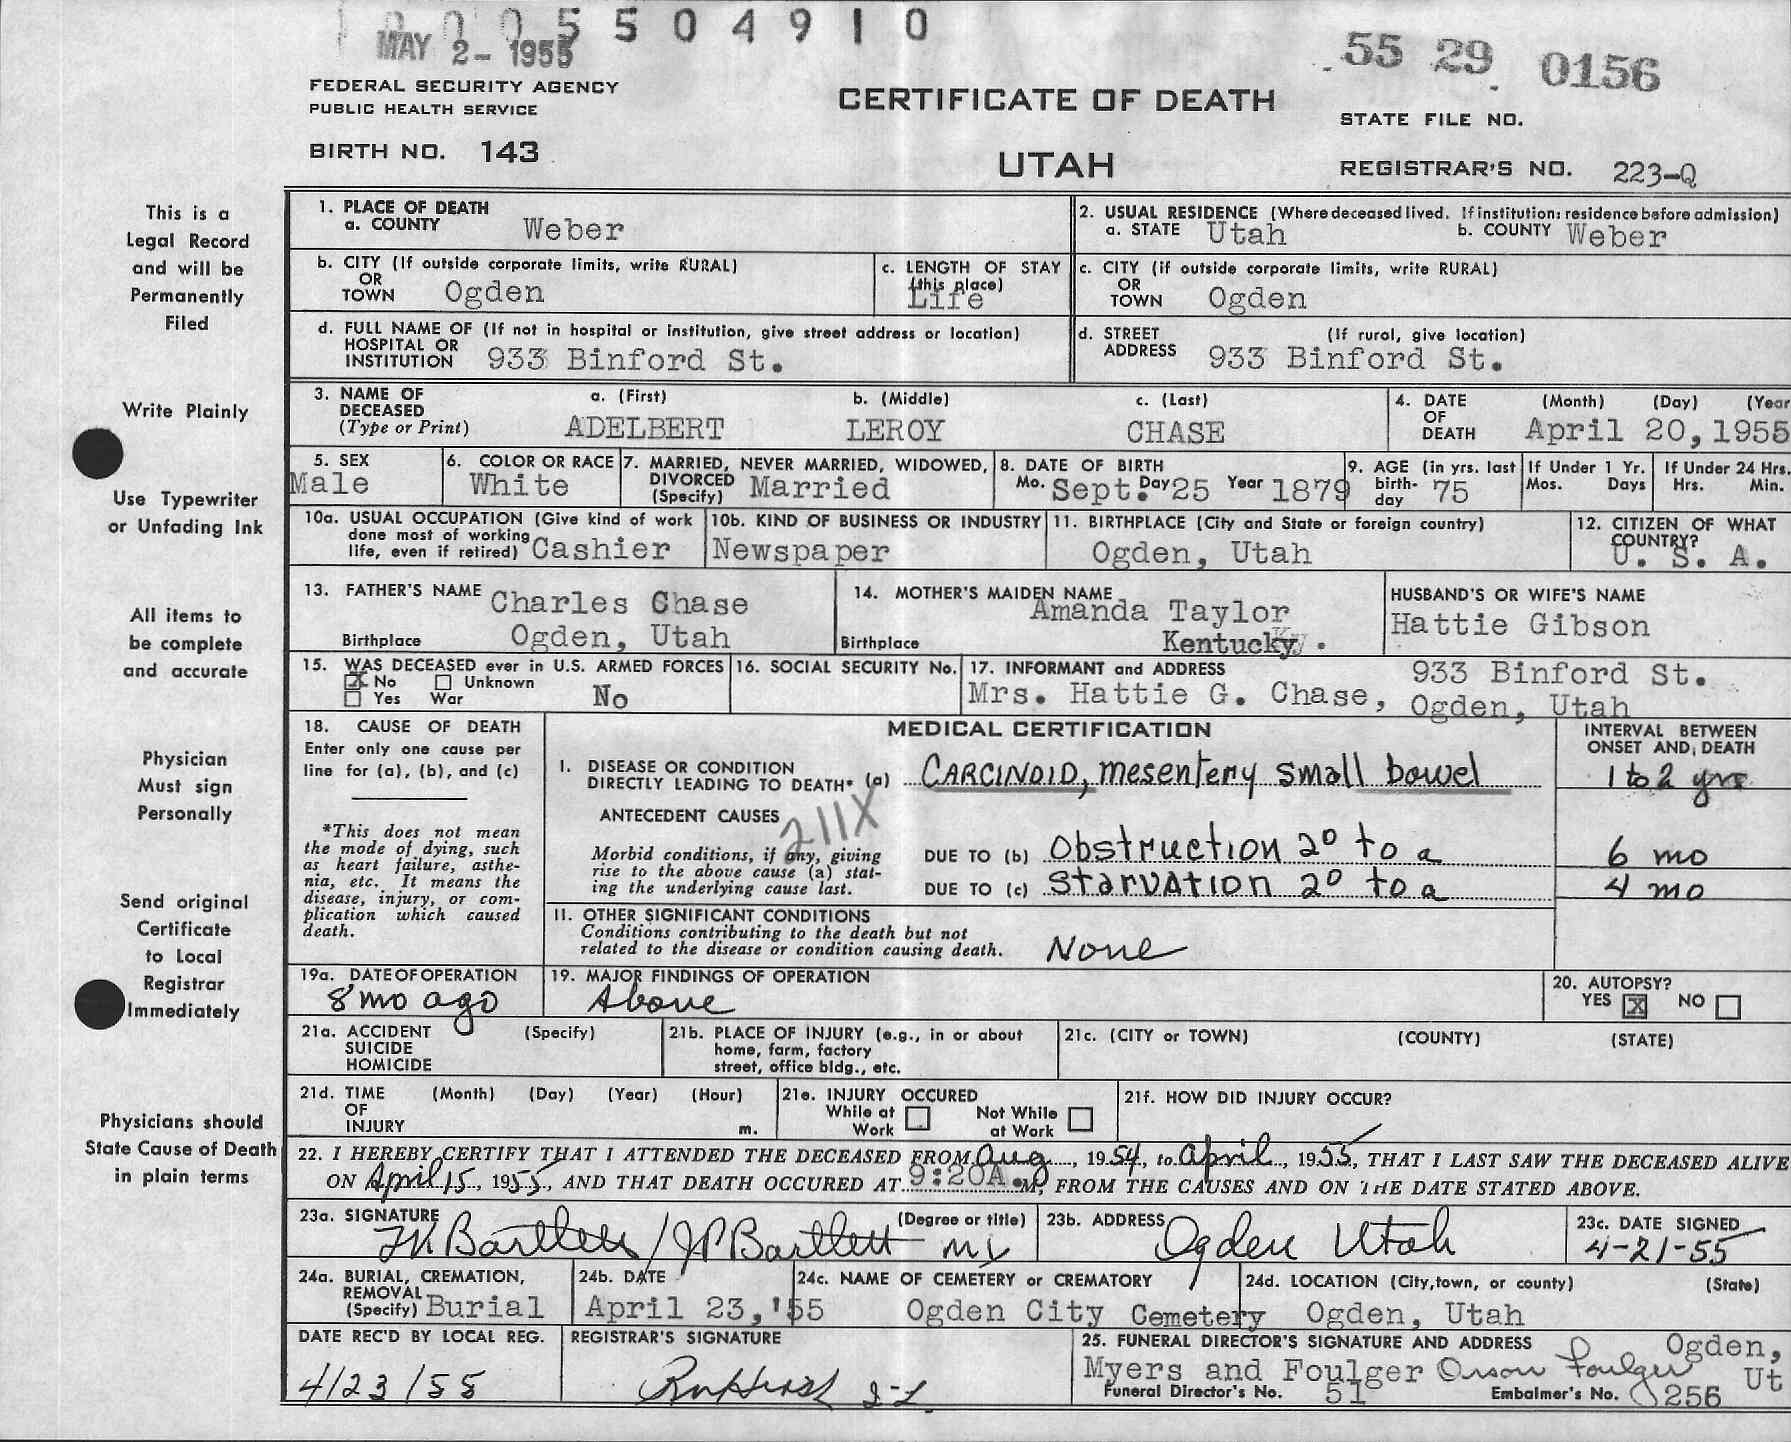 5 5 0 4 9 1 0
MAY 2- 1955
55 29 0156
FEDERAL SECURITY AGENCY
PUBLIC HEALTH SERVICE
CERTIFICATE OF DEATH
STATE FILE NO.
BIRTH NO. 143
UTAH
REGISTRAR'S NO. 223-Q
This is a
Legal Record
and will be
Permanently
Filed
Write Plainly
Use Typewriter
or Unfading Ink
All items to
be complete
and accurate
Physician
Must sign
Personally
Send original
Certificate
to Local
Registrar
Immediately
Physicians should
State Cause of Death
in plain terms
1. PLACE OF DEATH
a. COUNTY Weber
2. USUAL RESIDENCE (Where deceased lived. If institution: residence before admission)
a. STATE Utah b. COUNTY Weber
b. CITY (If outside corporate limits, write RURAL)
OR
TOWN Ogden
c. LENGTH OF STAY
(this place)
Life
c. CITY (if outside corporate limits, write RURAL)
OR
TOWN Ogden
d. FULL NAME OF (If not in hospital or institution, give street address or location)
HOSPITAL OR
INSTITUTION 933 Binford St.
d. STREET (If rural, give location)
ADDRESS 933 Binford St.
3. NAME OF a. (First) b. (Middle) c. (Last)
DECEASED
(Type or Print) ADELBERT LEROY CHASE
4. DATE (Month) (Day) (Year
OF
DEATH April 20, 1955
5. SEX
Male
6. COLOR OR RACE
White
7. MARRIED, NEVER MARRIED, WIDOWED,
DIVORCED
(Specify) Married
8. DATE OF BIRTH
Mo. Sept. Day 25 Year 1879
9. AGE (in yrs. last
birth-
day 75
If Under 1 Yr.
Mos. Days
If Under 24 Hrs.
Hrs. Min.
10a. USUAL OCCUPATION (Give kind of work
done most of working
life, even if retired) Cashier
10b. KIND OF BUSINESS OR INDUSTRY
Newspaper
11. BIRTHPLACE (City and State or foreign country)
Ogden, Utah
12. CITIZEN OF WHAT
COUNTRY?
U. S. A.
13. FATHER'S NAME Charles Chase
Birthplace Ogden, Utah
14. MOTHER'S MAIDEN NAME
Amanda Taylor
Birthplace Kentucky.
HUSBAND'S OR WIFE'S NAME
Hattie Gibson
15. WAS DECEASED ever in U.S. ARMED FORCES
X No Unknown
Yes War No
16. SOCIAL SECURITY No.
17. INFORMANT and ADDRESS 933 Binford St.
Mrs. Hattie G. Chase, Ogden, Utah
18. CAUSE OF DEATH
Enter only one cause per
line for (a), (b), and (c)
*This does not mean
the mode of dying, such
as heart failure, asthe-
nia, etc. It means the
disease, injury, or com-
plication which caused
death.
MEDICAL CERTIFICATION
INTERVAL BETWEEN
ONSET AND DEATH
I. DISEASE OR CONDITION
DIRECTLY LEADING TO DEATH* (a) CARCINOID, mesentery small bowel 1 to 2 yrs
ANTECEDENT CAUSES
211X
Morbid conditions, if any, giving
rise to the above cause (a) stat-
ing the underlying cause last.
DUE TO (b) Obstruction 2° to a 6 mo
DUE TO (c) Starvation 2° to a 4 mo
II. OTHER SIGNIFICANT CONDITIONS
Conditions contributing to the death but not
related to the disease or condition causing death. None
19a. DATE OF OPERATION
8 mo ago
19. MAJOR FINDINGS OF OPERATION
Above
20. AUTOPSY?
YES X NO
21a. ACCIDENT (Specify)
SUICIDE
HOMICIDE
21b. PLACE OF INJURY (e.g., in or about
home, farm, factory
street, office bldg., etc.
21c. (CITY or TOWN) (COUNTY) (STATE)
21d. TIME (Month) (Day) (Year) (Hour)
OF
INJURY m.
21e. INJURY OCCURED
While at Not While
Work at Work
21f. HOW DID INJURY OCCUR?
22. I HEREBY CERTIFY THAT I ATTENDED THE DECEASED FROM Aug, 1954, to April, 1955, THAT I LAST SAW THE DECEASED ALIVE
ON April 15, 1955, AND THAT DEATH OCCURED AT 9:20A.M, FROM THE CAUSES AND ON THE DATE STATED ABOVE.
23a. SIGNATURE (Degree or title)
Bartlett / JP Bartlett
23b. ADDRESS
Ogden Utah
23c. DATE SIGNED
4-21-55
24a. BURIAL, CREMATION,
REMOVAL
(Specify) Burial
24b. DATE
April 23, '55
24c. NAME OF CEMETERY or CREMATORY
Ogden City Cemetery
24d. LOCATION (City, town, or county) (State)
Ogden, Utah
DATE REC'D BY LOCAL REG.
4/23/55
REGISTRAR'S SIGNATURE
25. FUNERAL DIRECTOR'S SIGNATURE AND ADDRESS Ogden,
Myers and Foulger Orson Foulger Ut
Funeral Director's No. 51 Embalmer's No. 256